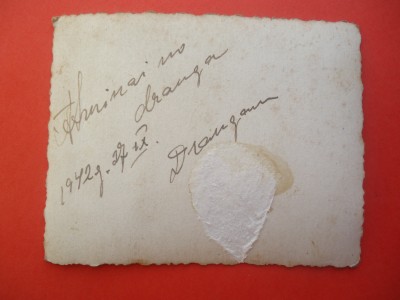 Atminai no
drauga
1942g. 27 IX.
Draugam